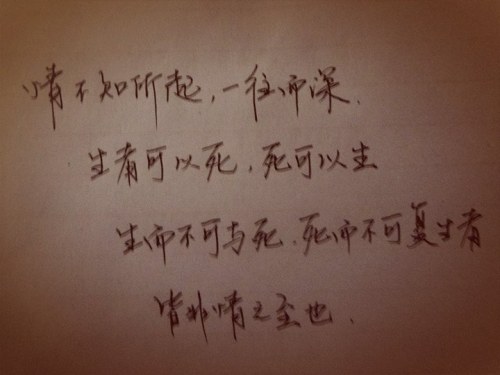 情不知所起，一往而深．
生者可以死，死可以生
生而不可与死．死而不可复生者
皆非情之至也．